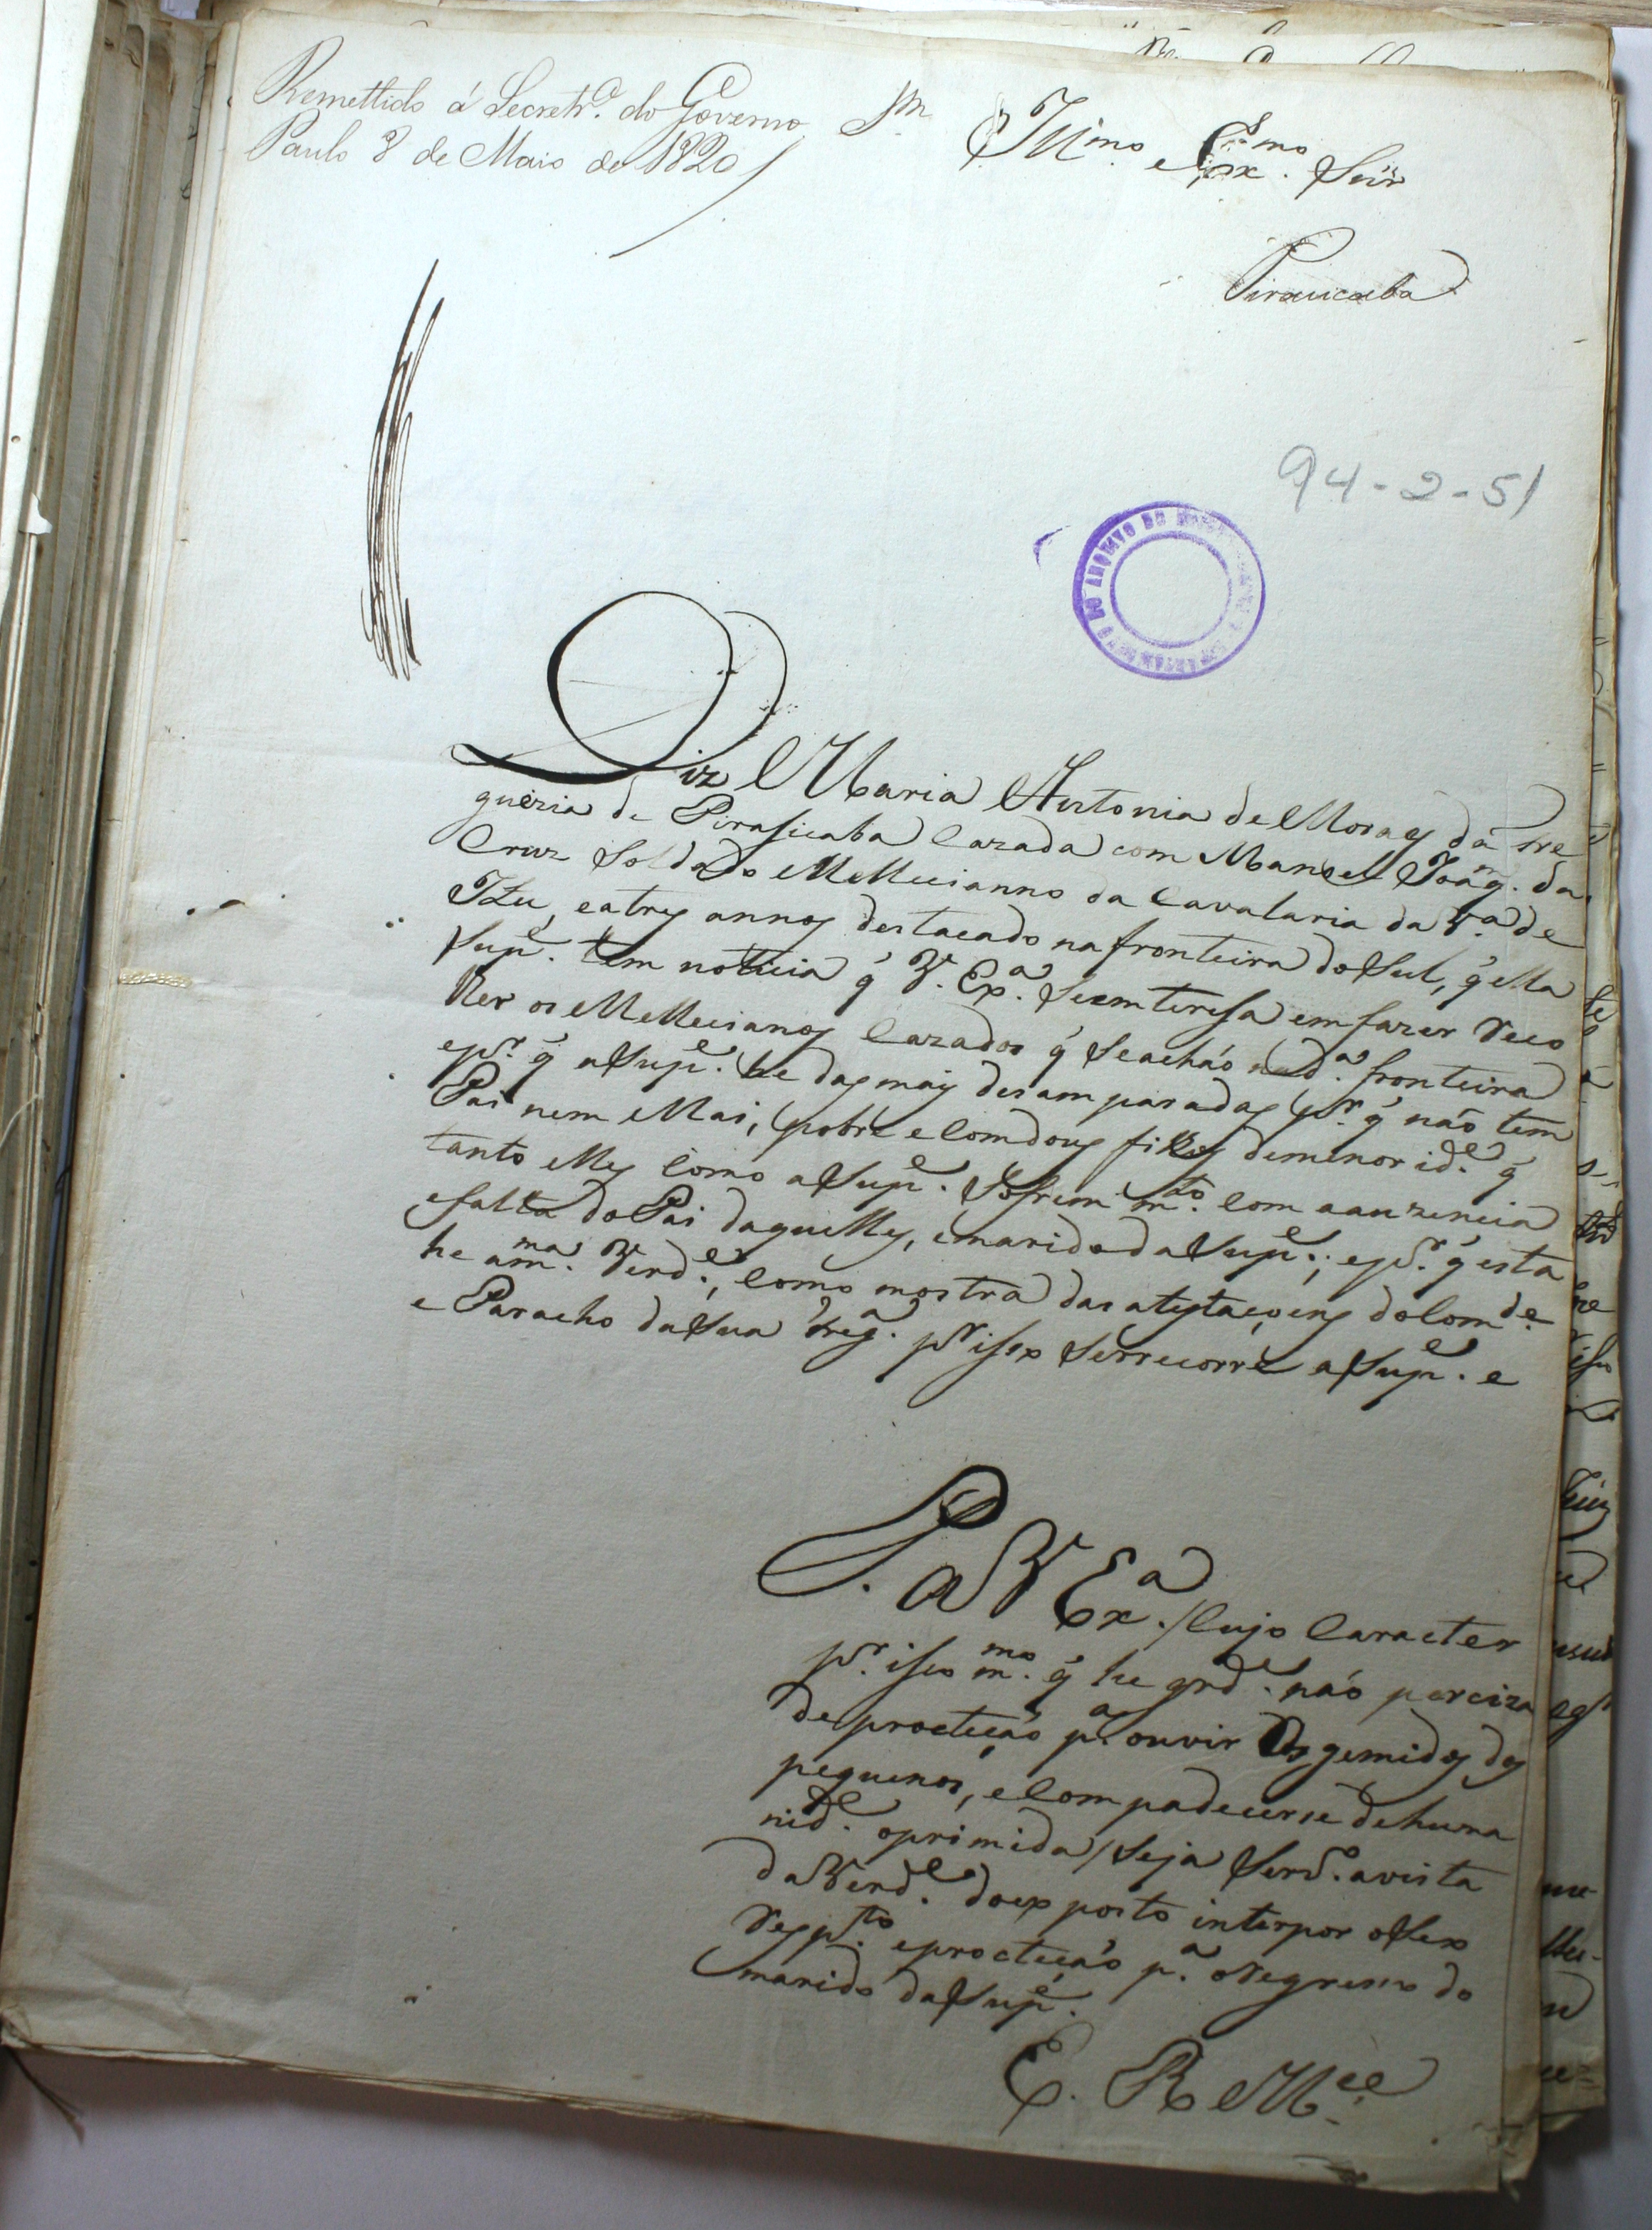 Remettido á Secretr.ª do Governo S.m
Paulo 8 de Maio de 1820
Ill.mo e Ex.mo Snr
Piracicaba
94-2-51
Diz Maria Antonia de Moraes da Fre
guezia de Pirasicaba Cazada com Manoel Joaq.m da
Cruz Soldado Mellecianno da Cavalaria da V.ª de
Itu, eatres annos destacado na fronteira do Sul, q̃ ella
Sup.e tem noticia q̃ V. Ex.ª Seenteresa em fazer Reco
lher os Mellecianos Cazados q̃ Seachaõ na d.ª fronteira
epr. q̃ aSup.e he das mais desamparadas pr. q̃ naõ tem
Pai nem Mai, pobre eComdous filhos demenor id.e q̃
tanto elles Como aSup.e Sofrem m.to Com aauzencia
efalta do Pai daquelles, emarido da Sup.e; epr. q̃ esta
he am.ma Verd.e, Como mostra das atestaçoens do Com.de
e Paracho da Sua Freg.ª pr. iso Serrecorre aSup.e e
P. a V Ex.ª /Cujo Caracter
pr. iso m.mo q̃ he grd.e naõ perciza
deprotecaõ p.ª ouvir Os gemidos dos
pequenos, eCompadecerse dehuma
nid.e oprimida/ Seja Serv.o avista
da Verd.e do exposto interpor o Seo
Resp.to eprotecaõ p.ª oRegreso do
marido da Sup.e
E. R M.ce